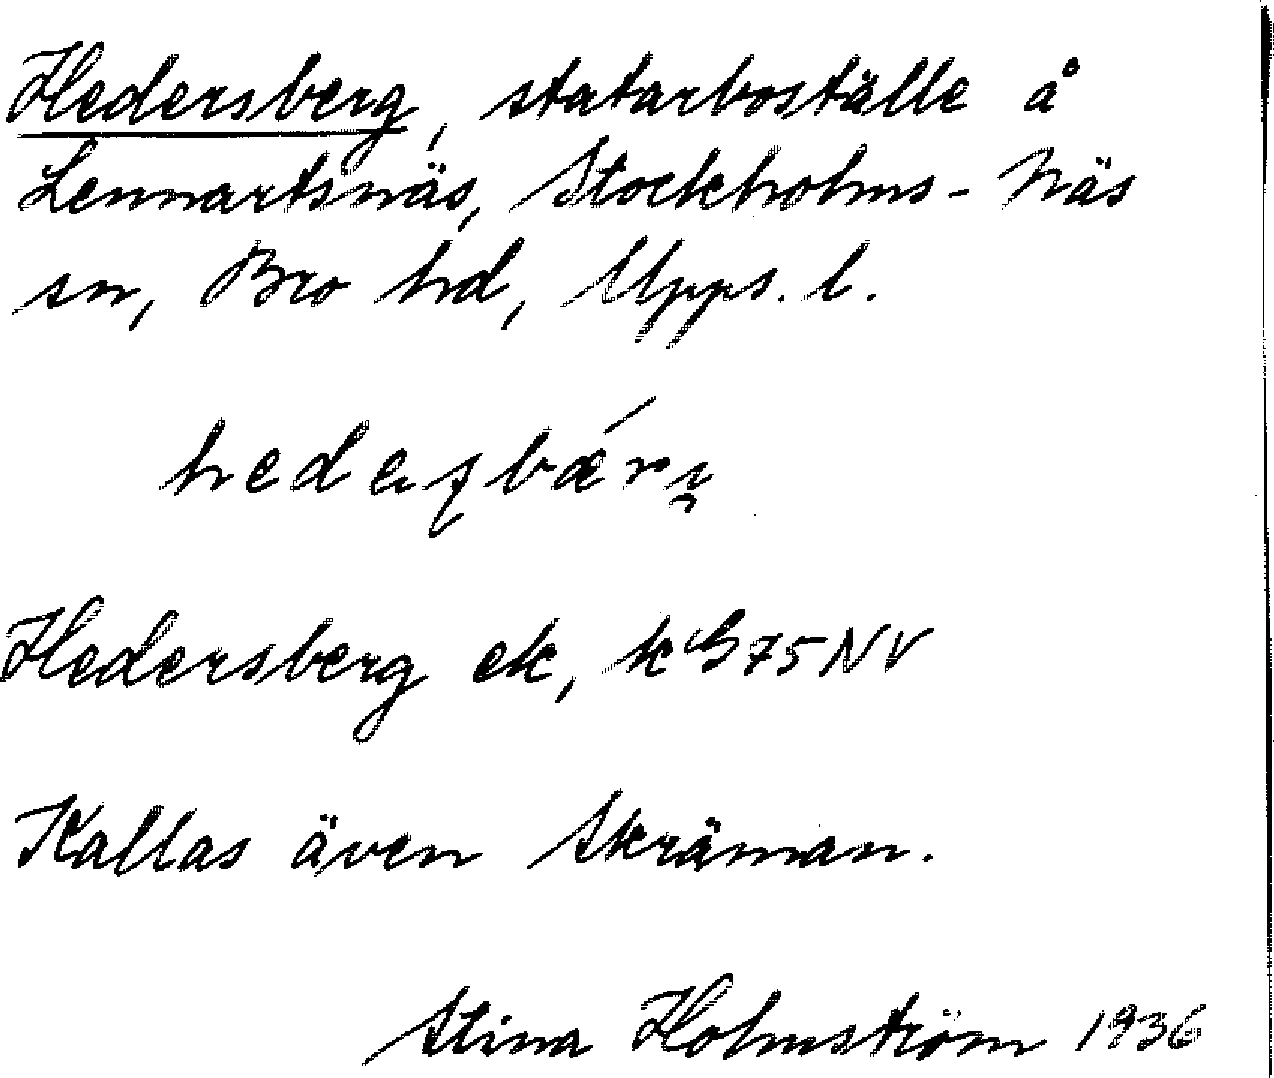 Hedersberg, statarboställe å
Lennartsnäs, Stockholms-Näs
sn, Bro hd, Upps. l.
Hedersberg ek, k 975 NV
Kallas även Skräman.
Stina Holmström 1936